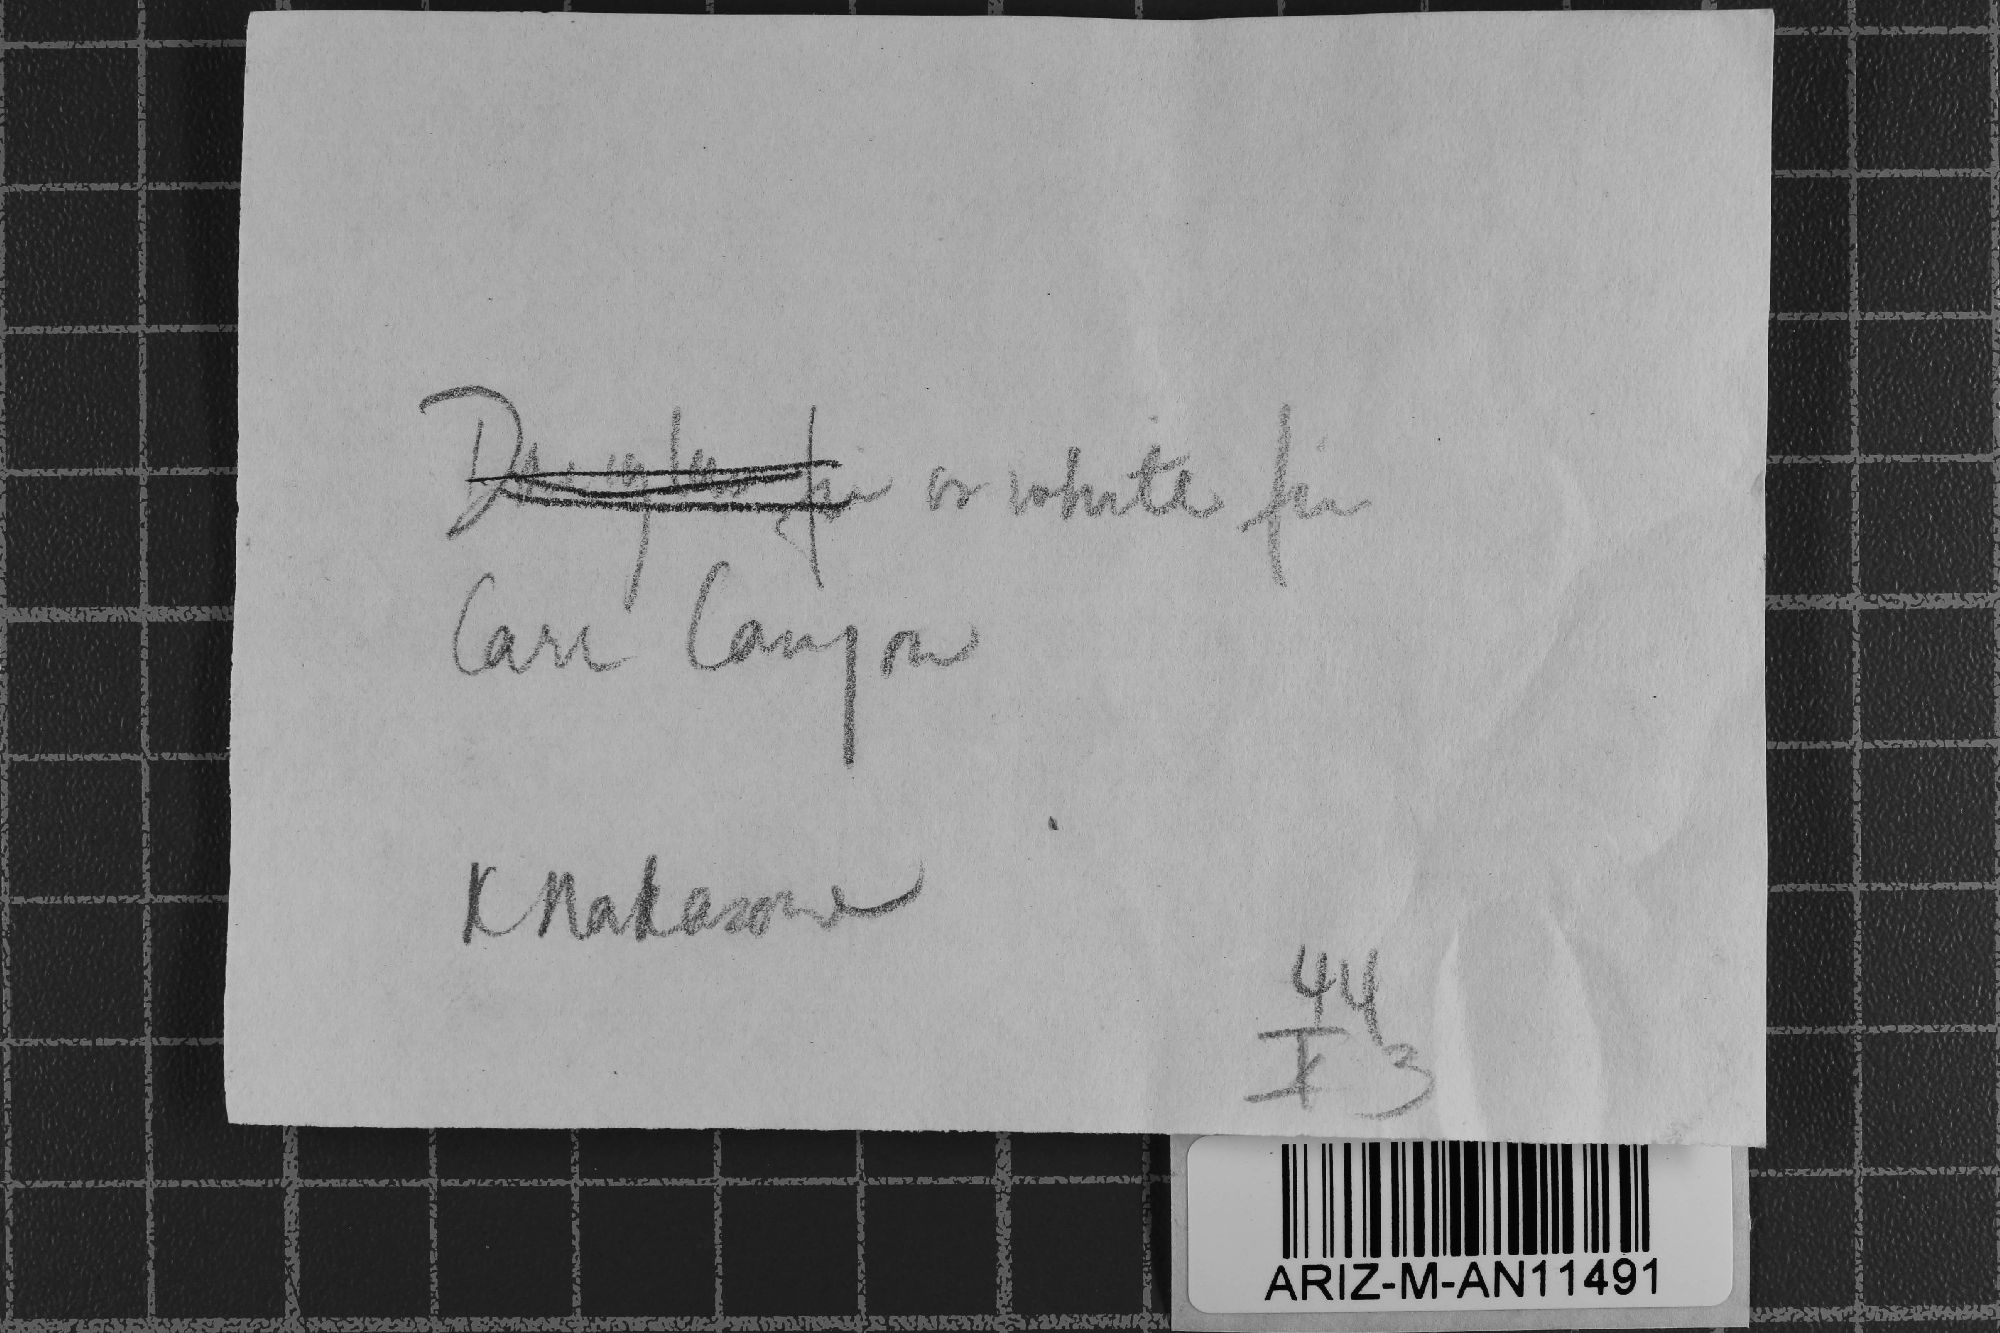 Douglas fir or white fir
Carr Canyon
K Nakasone
44
I 3
ARIZ-M-AN11491